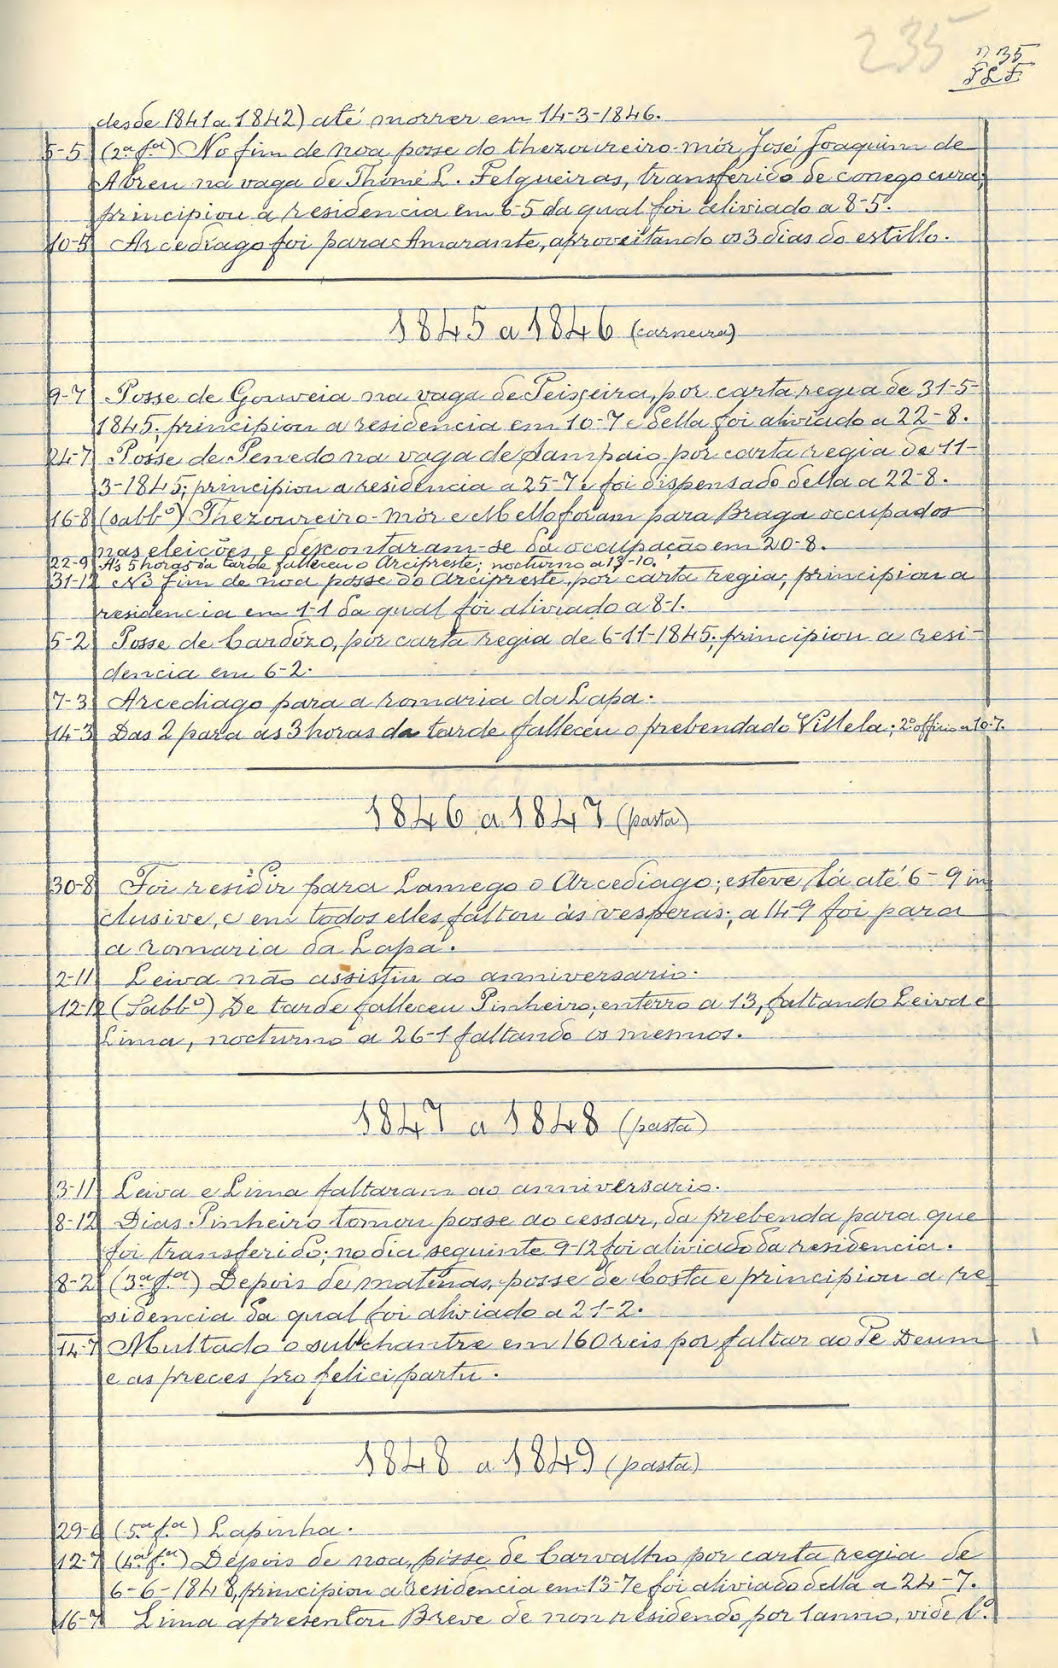 235
235
desde 1841 a 1842) até morrer em 14-3-1846.
5-5 (2ª fª) No fim de noa posse do thezoureiro-mór José Joaquim de
Abreu na vaga de Thomé L. Felgueiras, transferido de conego cura;
principiou a residencia em 6-5 da qual foi aliviado a 8-5.
10-5 Arcediago foi para Amarante, aproveitando os 3 dias do estillo.
1845 a 1846 (carneira)
9-7 Posse de Gouveia na vaga de Teixeira, por carta regia de 31-5-
1845; principiou a residencia em 10-7 e della foi aliviado a 22-8.
24-7 Posse de Penedo na vaga de Sampaio por carta regia de 11-
3-1845; principiou a residencia a 25-7 e foi dispensado della a 22-8.
16-8 (sabbº) Thezoureiro-mór e Mello foram para Braga occupados
nas eleições e descontaram-se da occupação em 20-8.
22-9 Ás 5 horas da tarde falleceu o Arcipreste; nocturno a 13-10.
31-12 No fim de noa posse do Arcipreste por carta regia; principiou a
residencia em 1-1 da qual foi aliviado a 8-1.
5-2 Posse de Cardozo, por carta regia de 6-11-1845; principiou a resi-
dencia em 6-2.
7-3 Arcediago para a romaria da Lapa.
14-3 Das 2 para as 3 horas da tarde falleceu o prebendado Villela; 2º officio a 10-7.
1846 a 1847 (pasta)
30-8 Foi residir para Lamego o Arcediago; esteve lá até 6-9 in
clusive, e em todos elles faltou ás vesperas; a 14-9 foi para
a romaria da Lapa.
2-11 Leiva não assistiu ao anniversario.
12-12 (Sabbº) De tarde falleceu Pinheiro; enterro a 13, faltando Leiva e
Lima, nocturno a 26-1 faltando os mesmos.
1847 a 1848 (pasta)
3-11 Leiva e Lima faltaram ao anniversario.
8-12 Dias Pinheiro tomou posse ao cessar, da prebenda para que
foi transferido; no dia seguinte 9-12 foi aliviado da residencia.
8-2 (3ª fª) Depois de matinas, posse de Costa e principiou a re
sidencia da qual foi aliviado a 21-2.
14-7 Multado o subchantre em 160 reis por faltar ao Te Deum
e as preces pro felici partu.
1848 a 1849 (pasta)
29-6 (5ª fª) Lapinha.
12-7 (4ª fª) Depois de noa, posse de Carvalho por carta regia de
6-6-1848, principiou a residencia em 13-7 e foi aliviado della a 24-7.
16-7 Lima apresentou Breve de non residendo por 1 anno, vide lº.